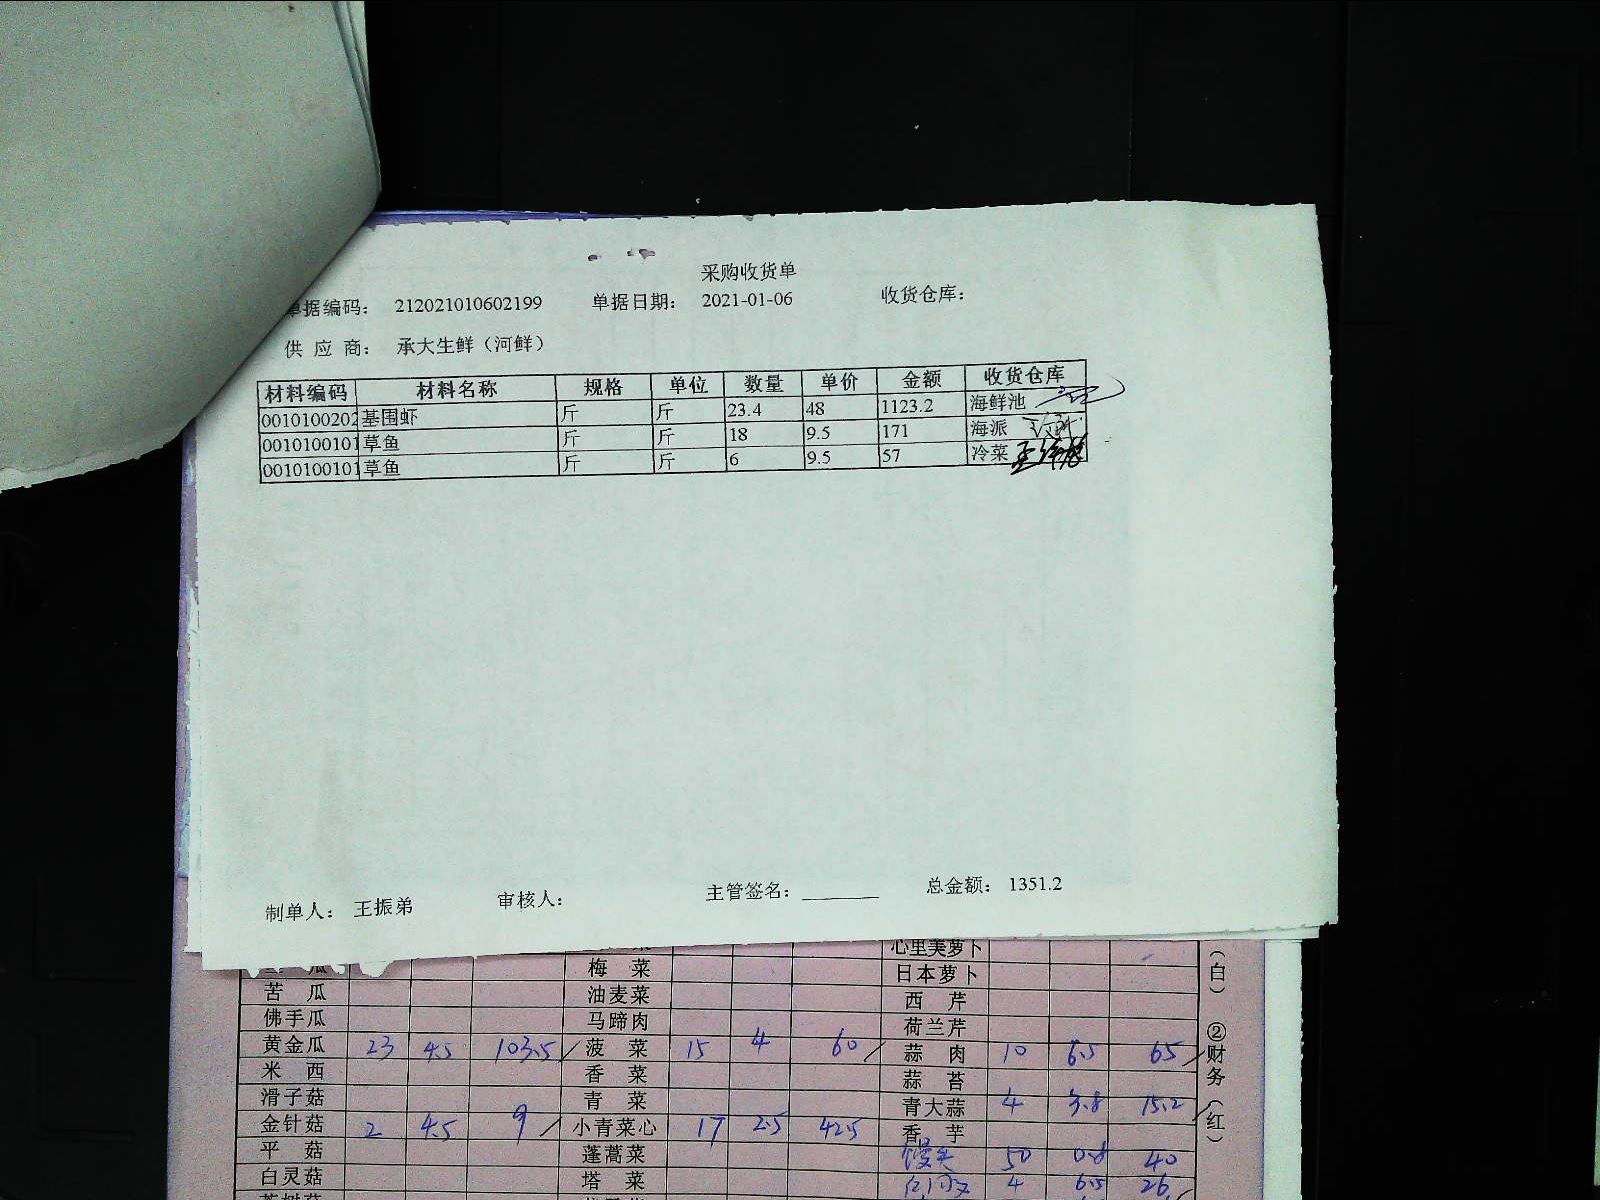 采购收货单
单据编码： 212021010602199 单据日期： 2021-01-06 收货仓库：
供 应 商： 承大生鲜（河鲜）
材料编码 材料名称 规格 单位 数量 单价 金额 收货仓库
0010100202 基围虾 斤 斤 23.4 48 1123.2 海鲜池
0010100101 草鱼 斤 斤 18 9.5 171 海派
0010100101 草鱼 斤 斤 6 9.5 57 冷菜
制单人： 王振弟 审核人： 主管签名： 总金额： 1351.2
心里美萝卜
瓜 梅 菜 日本萝卜
苦 瓜 油麦菜 西 芹
佛手瓜 马蹄肉 荷兰芹
黄金瓜 23 4.5 103.5 菠 菜 15 4 60 蒜 肉 10 6.5 65
米 西 香 菜 蒜 苔
滑子菇 青 菜 青大蒜 4 3.8 15.2
金针菇 2 4.5 9 小青菜心 17 2.5 42.5 香 芋
平 菇 蓬蒿菜 馒头 50 0.8 40
白灵菇 塔 菜 4 6.5 26
（白） ②财务（红）